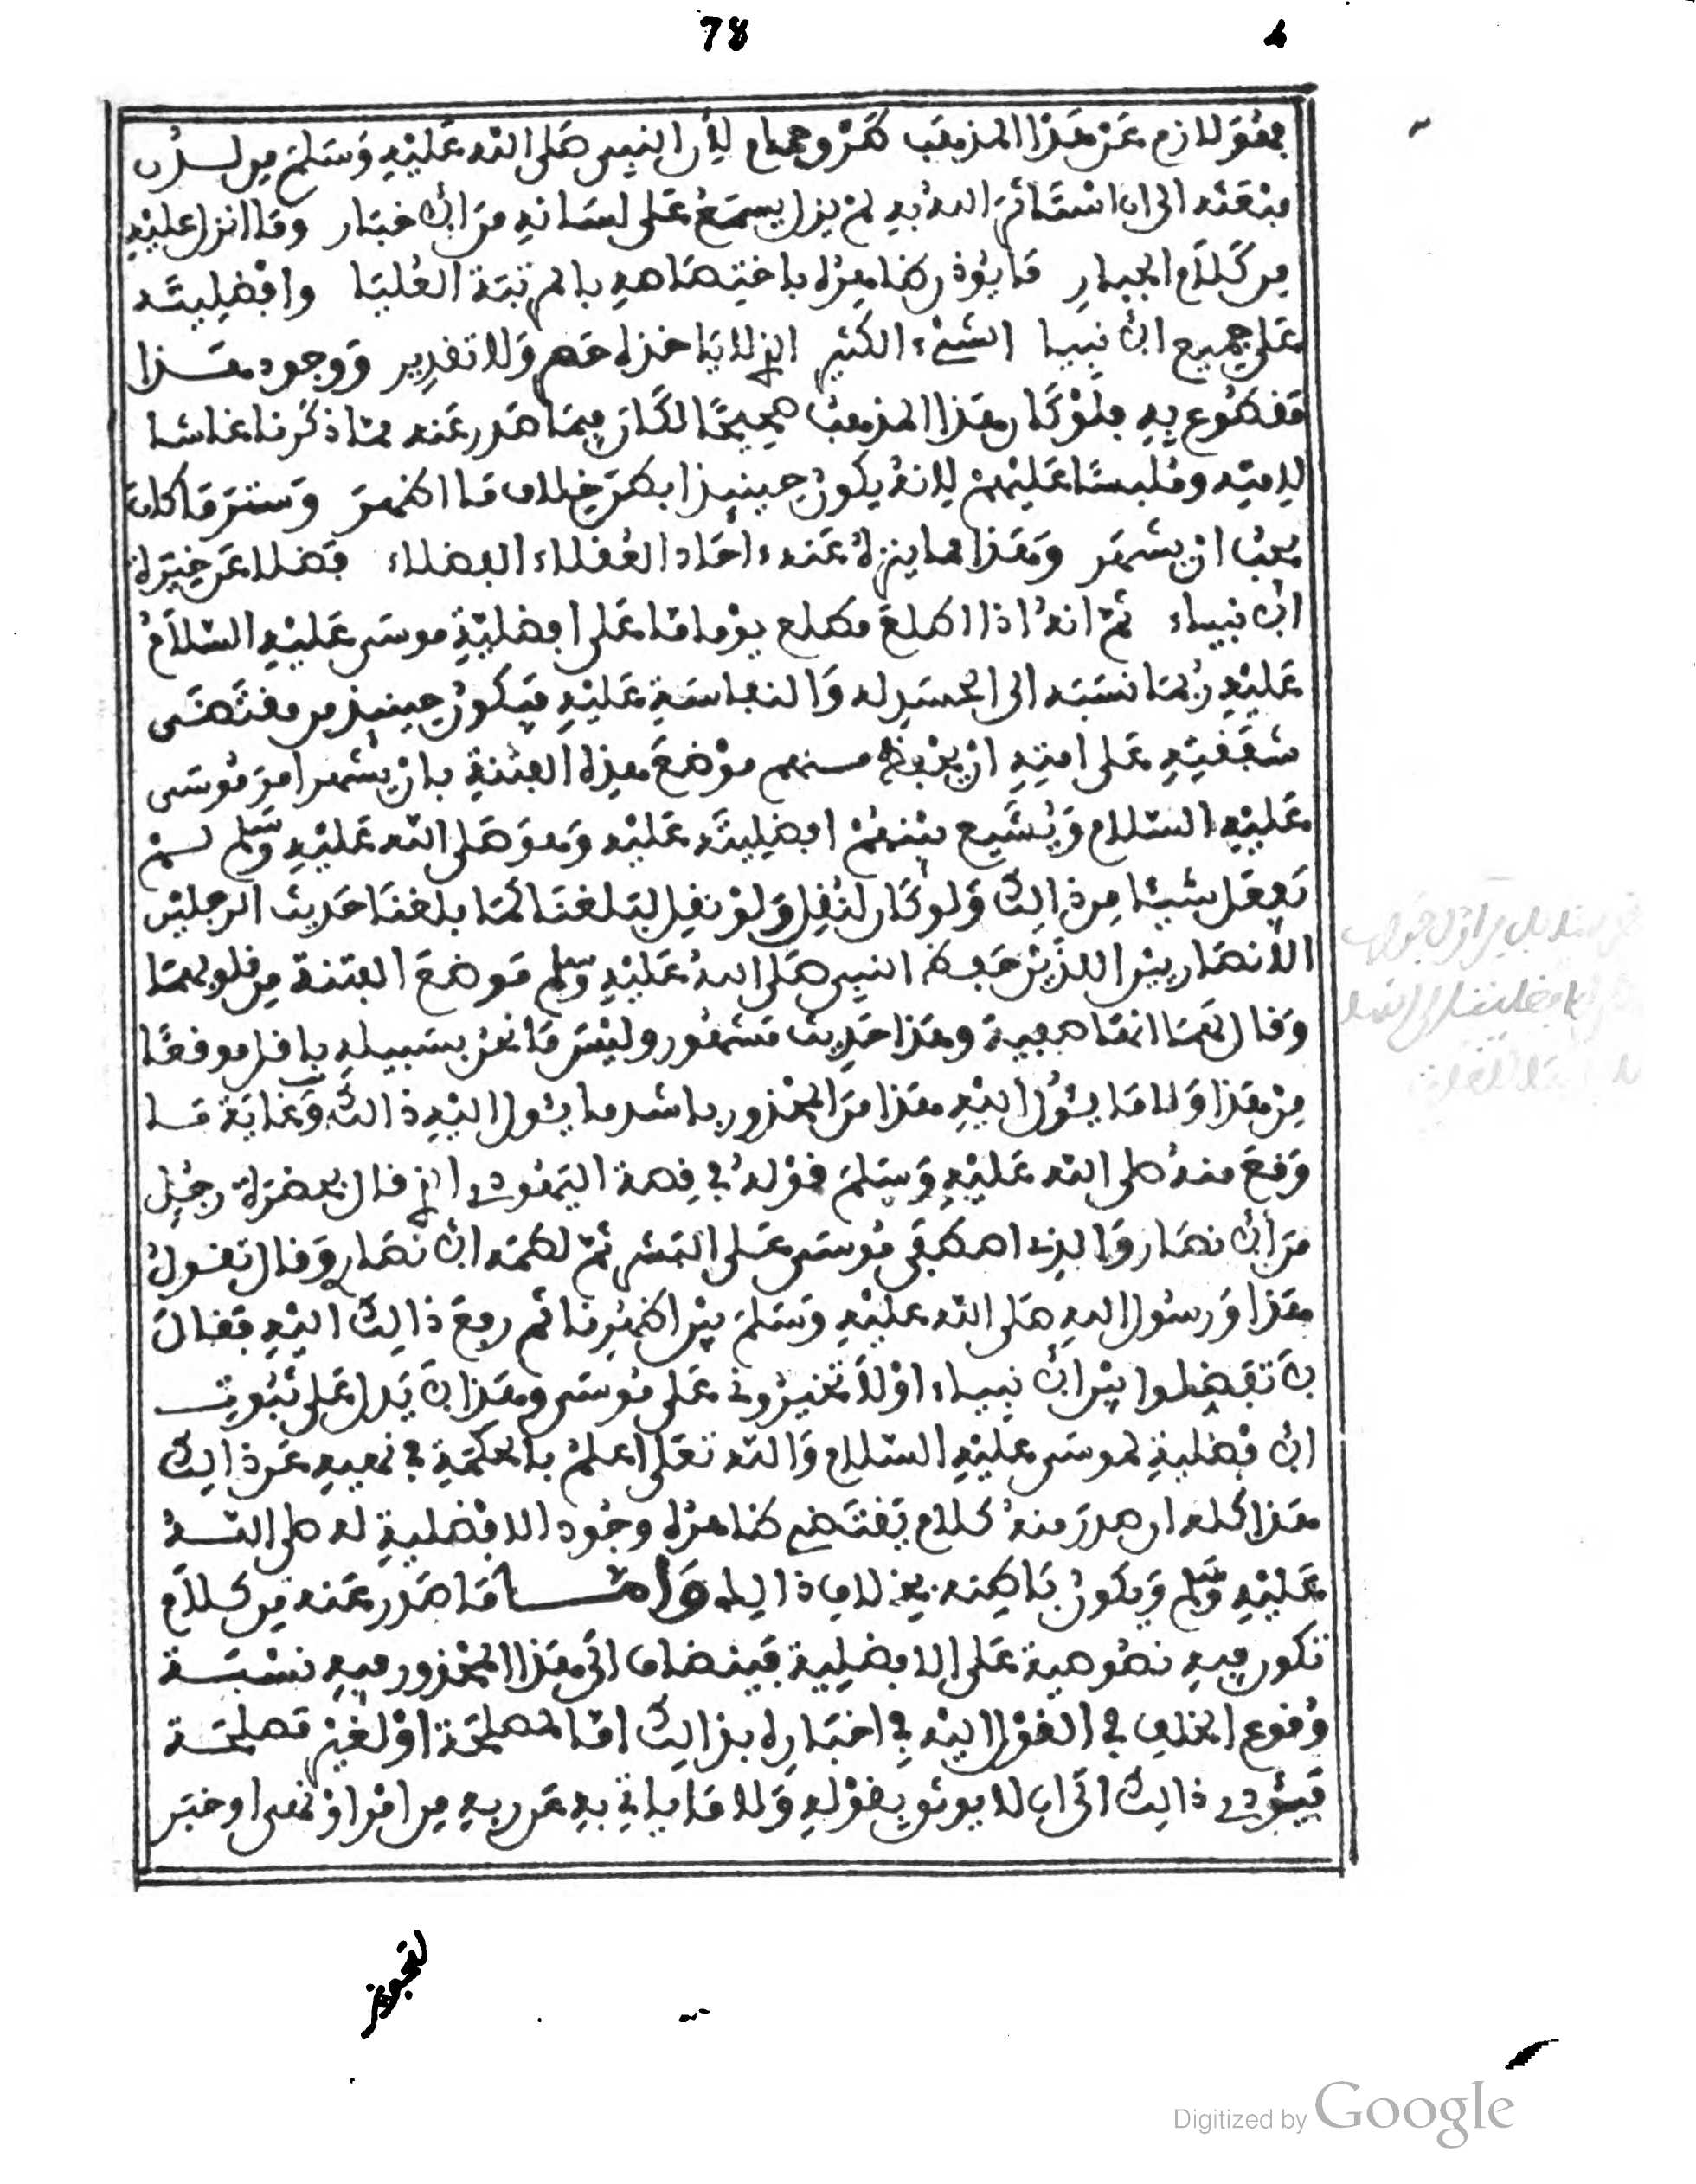 78
فهو لازم عن هذا المذهب لأن النبي صلى الله عليه وسلم من لدن
مبعثه الى ان استاثر الله به لم يزل يسمع على لسانه من الاخبار وما انزل عليه
من كلام الجبار ما يوذن ظاهره باختصاصه بالمرتبة العليا وافضليته
على جميع الانبيا الشيء الكثير الذي لا ياخذه حصر ولا تقدير ووجود هذا
مقطوع به فلو كان هذا المذهب صحيحا لكان فيما صدر عنه مما ذكرنا غاشا
لامته وملبسا عليهم لانه يكون حينيذ ابطن خلاف ما اظهر وستر ما كان
يجب ان يشهر وهذا مما ينزه عنه ءاحاد العقلاء الفضلاء فضلا عن خيرة
الانبياء ثم انه اذا اطلع مطلع يوما ما على افضلية موسى عليه السلام
عليه ربما نسبه الى الحسد له والنفاسة عليه فيكون حينيذ من مقتضى
شفقته على امته ان يحفظ منهم موضع هذه الفتنة بان يشهر امر موسى
عليه السلام ويشيع بينهم افضليته عليه وهو صلى الله عليه وسلم لم
يفعل شيئا من ذالك ولو كان لنقل ولو نقل لبلغنا كما بلغنا حديث الرجلين
الانصاريين اللذين حفظ النبي صلى الله عليه وسلم موضع الفتنة من قلوبهما
وقال لهما انها صفية وهذا حديث مشهور وليس ما نحن بسبيله باقل موقعا
من هذا ولا ما يئول اليه هذا من المحذور باشد ما يئول اليه ذالك وغاية ما
وقع منه صلى الله عليه وسلم قوله في قصة اليهودي الذي قال بحضرة رجل
من الانصار والذي اصطفى موسى على البشر ثم لطمه الانصاري وقال تقول
هذا ورسول الله صلى الله عليه وسلم بين اظهرنا ثم رفع ذالك اليه فقال
لا تفضلوا بين الانبياء او لا تخيروني على موسى وهذا لا يدل على ثبوت
الافضلية لموسى عليه السلام والله تعلى اعلم بالحكمة في نهيه عن ذالك
هذا كله ان صدر منه كلام يقتضي ظاهره وجود الافضلية له صلى الله
عليه وسلم ويكون باطنه بخلاف ذالك واما ما صدر عنه من كلام
تكون فيه نصوصية على الافضلية فينضاف الى هذا المحذور فيه نسبة
وقوع الخلف في القول اليه في اخباره بذالك اما لمصلحة او لغير مصلحة
فيئودي ذالك الى ان لا يوثق بقوله ولا ما ياتي به عن ربه من امر او نهي او خبر
Digitized by Google